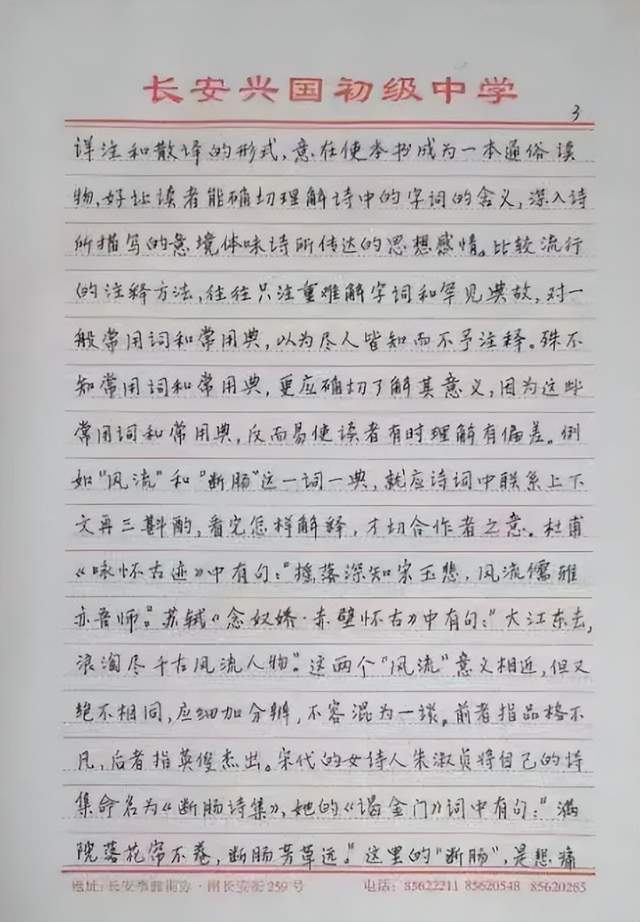 长安兴国初级中学
3
详注和散译的形式,意在使本书成为一本通俗读
物,好让读者能确切理解诗中的字词的含义,深入诗
所描写的意境体味诗所传达的思想感情。比较流行
的注释方法,往往只注重难解字词和罕见典故,对一
般常用词和常用典,以为尽人皆知而不予注释。殊不
知常用词和常用典,更应确切了解其意义,因为这些
常用词和常用典,反而易使读者有时理解有偏差。例
如“风流”和“断肠”这一词一典,就应诗词中联系上下
文再三斟酌,看究怎样解释,才切合作者之意。杜甫
《咏怀古迹》中有句:“摇落深知宋玉悲,风流儒雅
亦吾师”。苏轼《念奴娇·赤壁怀古》中有句:“大江东去,
浪淘尽千古风流人物”。这两个“风流”意义相近,但又
绝不相同,应细加分辨,不容混为一谈。前者指品格不
凡,后者指英俊杰出。宋代的女诗人朱淑贞将自己的诗
集命名为《断肠诗集》,她的《谒金门》词中有句:“满
院落花帘不卷,断肠芳草远。”这里的“断肠”,是悲痛
地址:长安 南长安街259号
电话: 85622211 85620548 85620265